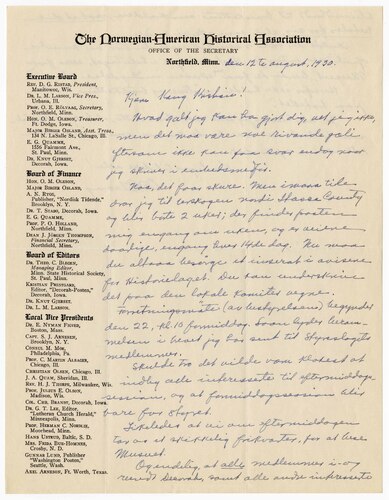 The Norwegian-American Historical Association
OFFICE OF THE SECRETARY
Northfield, Minn. den 12te august, 1930.
Executive Board
REV. D. G. RISTAD, President,
Manitowoc, Wis.
DR. L. M. LARSON, Vice Pres.,
Urbana, Ill.
PROF. O. E. RÖLVAAG, Secretary,
Northfield, Minn.
HON. O. M. OLESON, Treasurer,
Ft. Dodge, Iowa.
MAJOR BIRGER OSLAND, Asst. Treas.,
134 N. LaSalle St., Chicago, Ill.
E. G. QUAMME,
1556 Fairmont Ave.,
St. Paul, Minn.
DR. KNUT GJERSET,
Decorah, Iowa.
Board of Finance
HON. O. M. OLESON,
MAJOR BIRGER OSLAND,
A. N. RYGG,
Publisher, "Nordisk Tidende,"
Brooklyn, N. Y.
DR. T. STABO, Decorah, Iowa.
E. G. QUAMME,
St. Paul, Minn.
PROF. P. O. HOLLAND,
Northfield, Minn.
DEAN J. JÖRGEN THOMPSON,
Financial Secretary,
Northfield, Minn.
Board of Editors
DR. THEO. C. BLEGEN,
Managing Editor,
Minn. State Historical Society,
St. Paul, Minn.
KRISTIAN PRESTGARD,
Editor, "Decorah-Posten,"
Decorah, Iowa.
DR. KNUT GJERSET
DR. L. M. LARSON
Local Vice Presidents
DR. E. NYMAN FIGVED,
Boston, Mass.
CAPT. S. J. ARNESEN,
Brooklyn, N. Y.
CONSUL M. MOE,
Philadelphia, Pa.
PROF. C. MARTIN ALSAGER,
Chicago, Ill.
CHRISTIAN OLSEN, Chicago, Ill.
J. A. QUAM, Sheridan, Ill.
REV. H. J. THORPE, Milwaukee, Wis.
PROF. JULIUS E. OLSON,
Madison, Wis.
COL. CHR. BRANDT, Decorah, Iowa.
DR. G. T. LEE, Editor,
"Lutheran Church Herald,"
Minneapolis, Minn.
PROF. HERMAN C. NORDLIE,
Moorhead, Minn.
HANS USTRUD, Baltic, S. D.
MRS. FRIDA BUE-HOMNES,
Crosby, N. D.
GUNNAR LUND, Publisher
"Washington Posten,"
Seattle, Wash.
AXEL ARNESON, Ft. Worth, Texas.
Kjære Knng
Hvad galt jeg kan ha gjort dig, vet jeg ikke,
men det maa være noe
eftersom ikke kan faa svar endog naar
jeg skriver i
Naa, det faar skure. Men i mens
jeg til
og blir borte 2 uker; der finder posten
mig engang om uken, og er veiene
daarlige, engang hver 14de dag. Nu maa
du altsaa besörge et insirat i avisene
for Historielaget. Du kan underskrive
det paa den lokale komites vegne.
(av bestyrelsen) begynder
den 22, kl. 10 formiddag.
i brevet jeg har sent til Styrelagets
medlemmer.
Skulde tro det vilde være klokest at
indby alle interesserte til eftermiddags
sessionen, og at formiddagsession blir
bare for Styret.
Likeledes at vi om eftermiddagen
tar os et for at bese
Museet.
Og endelig, at alle medlemmer i og
rundt Decorah, samt alle andre interesserte